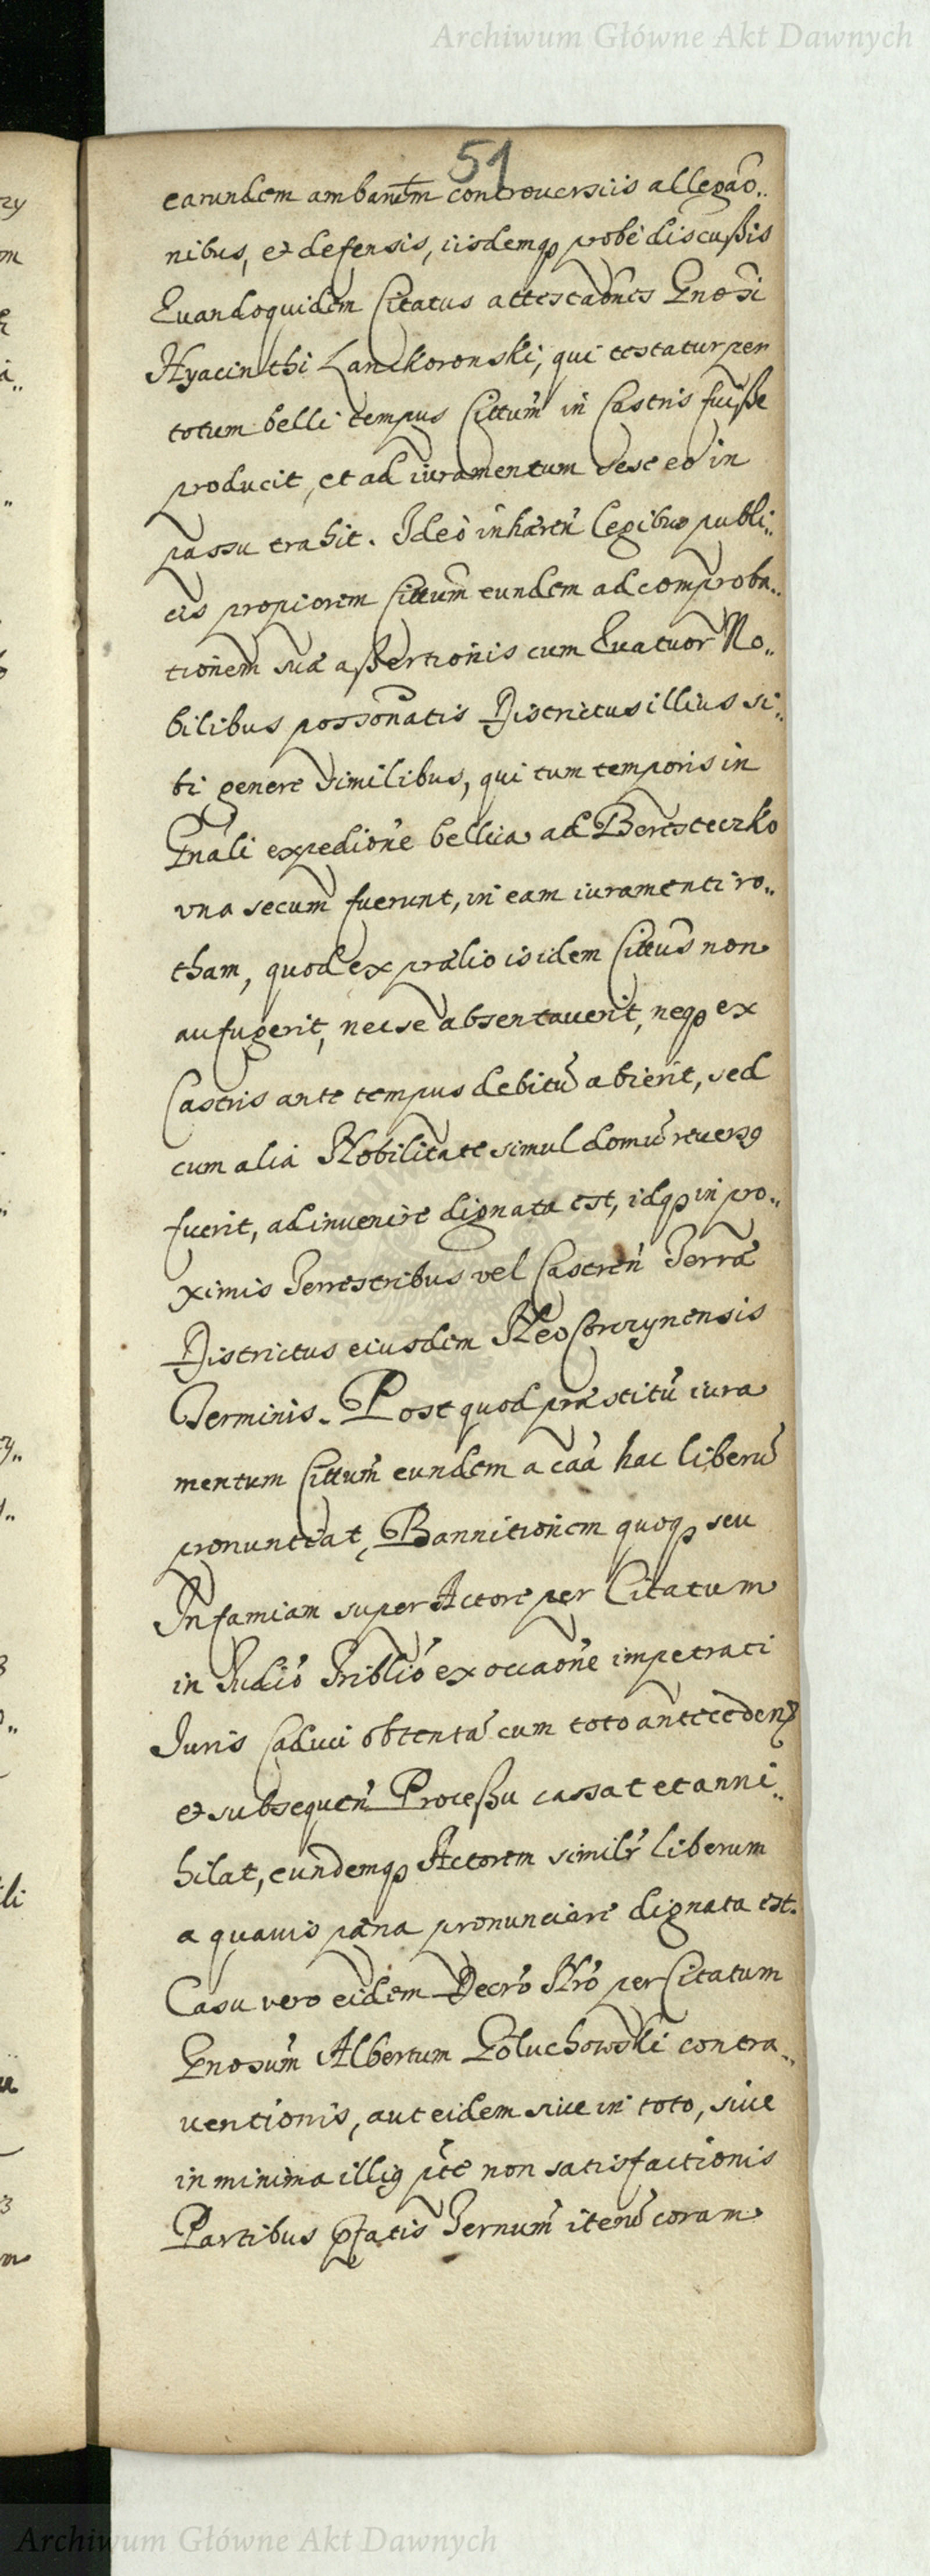 Archiwum Główne Akt Dawnych
51
earundem ambarũm controuersiis allegaõ„
nibus, et defensis, iisdemq3 probè discußis
Quandoquidem Citatus attestaões Gnosi
Hyacinthi Lanckoronski, qui testatur per
totum belli tempus Cittum̃ in Castris fuiße
producit, et ad iuramentum sese eo in
passu trahit. Ideò inhæren̄ legibus publi„
cis propiorem Cittum̃ eundem ad comproba„
tionem suæ aßertionis cum Quatuor No„
bilibus possõnatis Districtus illius si„
bi genere similibus, qui tum temporis in
Gnali expedione bellica ad Beresteczko
vna secum fuerunt, in eam iuramenti ro„
tham, quod ex prælio is idem Cittus̃ non
aufugerit, nec se absentauerit, neq3 ex
Castris ante tempus debitũ abierit, sed
cum alia Nobilitate simul domũ revers9
fuerit, adinvenire dignata est, idq3 in pro„
ximis Terrestribus vel Castren̄ Terræ
Districtus eiusdem NeoCorczynensis
Terminis. Post quod præstitũ iura
mentum Cittum̃ eundem a caã hac liberũ
pronuntiat, Bannitionem quoq3 seu
Infamiam super Actore per Citatum
in Judió Triblió ex occaõne impetrati
Juris Caduci obtentã cum toto anteceden̄
et subsequen̄ Proceßu cassat et anni„
hilat, eundemq3 Actorem similr̃ liberum
a quauis pæna pronunciare dignata est.
Casu vero eidem Decrõ Nrõ per Citatum
Gnosum̃ Albertum Goluchowski contra„
uentionis, aut eidem siue in toto, siue
in minima illi9 pte non satisfactionis
Partibus pfatis Ternum̃ iterũ coram
Archiwum Główne Akt Dawnych